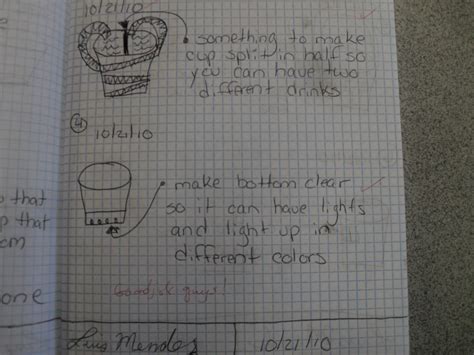 10/21/10
something to make
cup split in half so
you can have two
different drinks
4
10/21/10
make bottom clear
so it can have lights
and light up in
different colors
Good job guys!
o that
p that
om
one
Luis Mendes
10/21/10